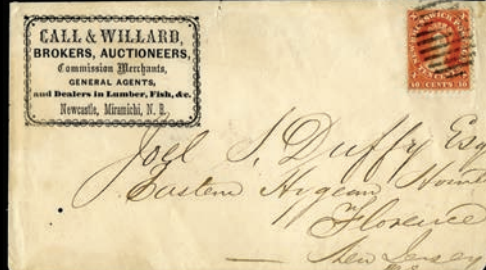 CALL & WILLARD,
BROKERS, AUCTIONEERS,
Commission Merchants,
GENERAL AGENTS,
and Dealers in Lumber, Fish, &c.
Newcastle, Miramichi, N. B.,
X X
10 CENTS 10
Joel S. Duffy Esq
Eastern Hygean Home
Florence
New Jersey